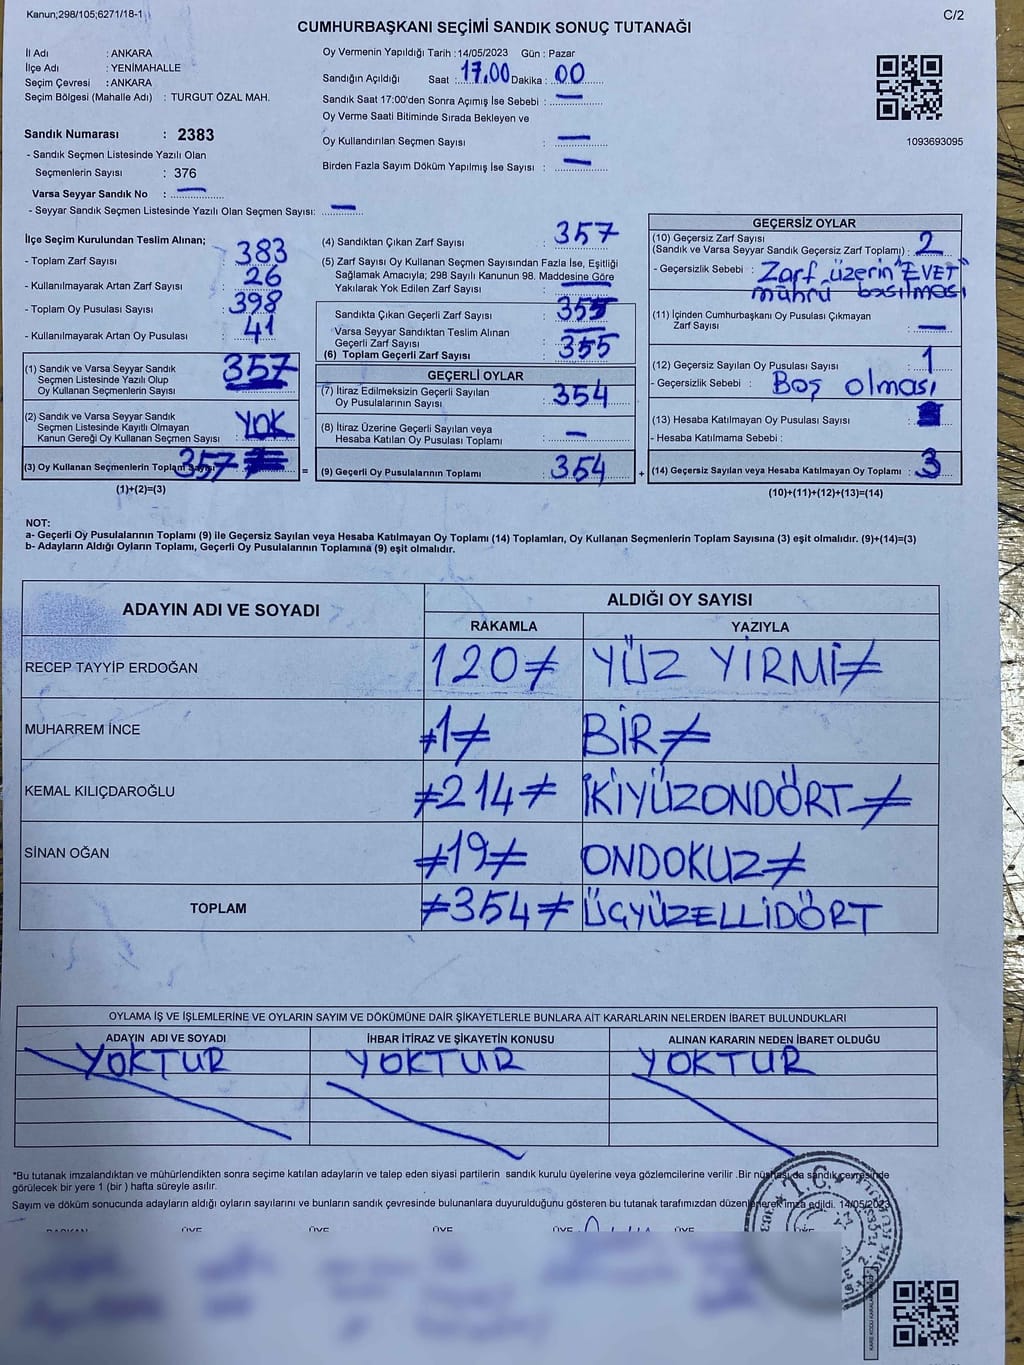 Kanun;298/105;6271/18-1
C/2
CUMHURBAŞKANI SEÇİMİ SANDIK SONUÇ TUTANAĞI
İl Adı : ANKARA
İlçe Adı : YENİMAHALLE
Seçim Çevresi : ANKARA
Seçim Bölgesi (Mahalle Adı) : TURGUT ÖZAL MAH.
Oy Vermenin Yapıldığı Tarih :14/05/2023 Gün : Pazar
Sandığın Açıldığı Saat : 17.00 Dakika : 00
Sandık Saat 17:00'den Sonra Açımış İse Sebebi : —
Oy Verme Saati Bitiminde Sırada Bekleyen ve
Oy Kullandırılan Seçmen Sayısı : —
Birden Fazla Sayım Döküm Yapılmış İse Sayısı : —
1093693095
Sandık Numarası : 2383
- Sandık Seçmen Listesinde Yazılı Olan
Seçmenlerin Sayısı : 376
Varsa Seyyar Sandık No : —
- Seyyar Sandık Seçmen Listesinde Yazılı Olan Seçmen Sayısı: —
İlçe Seçim Kurulundan Teslim Alınan;
- Toplam Zarf Sayısı : 383
- Kullanılmayarak Artan Zarf Sayısı : 26
- Toplam Oy Pusulası Sayısı : 398
- Kullanılmayarak Artan Oy Pusulası : 41
(1) Sandık ve Varsa Seyyar Sandık
Seçmen Listesinde Yazılı Olup
Oy Kullanan Seçmenlerin Sayısı : 357
(2) Sandık ve Varsa Seyyar Sandık
Seçmen Listesinde Kayıtlı Olmayan
Kanun Gereği Oy Kullanan Seçmen Sayısı : YOK
(3) Oy Kullanan Seçmenlerin Toplam Sayısı 357
(1)+(2)=(3)
(4) Sandıktan Çıkan Zarf Sayısı : 357
(5) Zarf Sayısı Oy Kullanan Seçmen Sayısından Fazla İse, Eşitliği
Sağlamak Amacıyla; 298 Sayılı Kanunun 98. Maddesine Göre
Yakılarak Yok Edilen Zarf Sayısı : —
Sandıkta Çıkan Geçerli Zarf Sayısı : 355
Varsa Seyyar Sandıktan Teslim Alınan
Geçerli Zarf Sayısı : —
(6) Toplam Geçerli Zarf Sayısı : 355
GEÇERLİ OYLAR
(7) İtiraz Edilmeksizin Geçerli Sayılan
Oy Pusulalarının Sayısı : 354
(8) İtiraz Üzerine Geçerli Sayılan veya
Hesaba Katılan Oy Pusulası Toplamı : —
=
(9) Geçerli Oy Pusulalarının Toplamı : 354
+
GEÇERSİZ OYLAR
(10) Geçersiz Zarf Sayısı
(Sandık ve Varsa Seyyar Sandık Geçersiz Zarf Toplamı) : 2
- Geçersizlik Sebebi : Zarf üzerin "EVET"
mührü basılması
(11) İçinden Cumhurbaşkanı Oy Pusulası Çıkmayan
Zarf Sayısı : —
(12) Geçersiz Sayılan Oy Pusulası Sayısı : 1
- Geçersizlik Sebebi : Boş olması
(13) Hesaba Katılmayan Oy Pusulası Sayısı :
- Hesaba Katılmama Sebebi :
(14) Geçersiz Sayılan veya Hesaba Katılmayan Oy Toplamı : 3
(10)+(11)+(12)+(13)=(14)
NOT:
a- Geçerli Oy Pusulalarının Toplamı (9) ile Geçersiz Sayılan veya Hesaba Katılmayan Oy Toplamı (14) Toplamları, Oy Kullanan Seçmenlerin Toplam Sayısına (3) eşit olmalıdır. (9)+(14)=(3)
b- Adayların Aldığı Oyların Toplamı, Geçerli Oy Pusulalarının Toplamına (9) eşit olmalıdır.
ADAYIN ADI VE SOYADI
ALDIĞI OY SAYISI
RAKAMLA YAZIYLA
RECEP TAYYİP ERDOĞAN 120≠ YÜZ YİRMİ≠
MUHARREM İNCE ≠1≠ BİR≠
KEMAL KILIÇDAROĞLU ≠214≠ İKİYÜZONDÖRT≠
SİNAN OĞAN ≠19≠ ONDOKUZ≠
TOPLAM ≠354≠ ÜÇYÜZELLİDÖRT
OYLAMA İŞ VE İŞLEMLERİNE VE OYLARIN SAYIM VE DÖKÜMÜNE DAİR ŞİKAYETLERLE BUNLARA AİT KARARLARIN NELERDEN İBARET BULUNDUKLARI
ADAYIN ADI VE SOYADI İHBAR İTİRAZ VE ŞİKAYETİN KONUSU ALINAN KARARIN NEDEN İBARET OLDUĞU
YOKTUR YOKTUR YOKTUR
*Bu tutanak imzalandıktan ve mühürlendikten sonra seçime katılan adayların ve talep eden siyasi partilerin sandık kurulu üyelerine veya gözlemcilerine verilir .Bir nüshası da sandık çevresinde
görülecek bir yere 1 (bir ) hafta süreyle asılır.
Sayım ve döküm sonucunda adayların aldığı oyların sayılarını ve bunların sandık çevresinde bulunanlara duyurulduğunu gösteren bu tutanak tarafımızdan düzenlenerek imza edildi. 14/05/2023
BAŞKAN ÜYE ÜYE ÜYE ÜYE ÜYE
T.C.